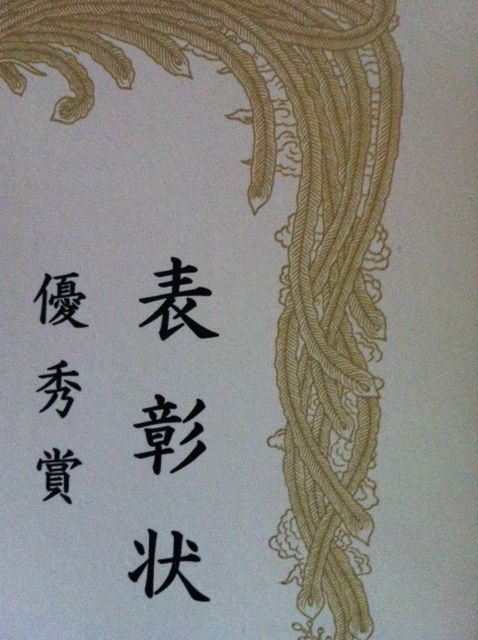 表彰状
優秀賞